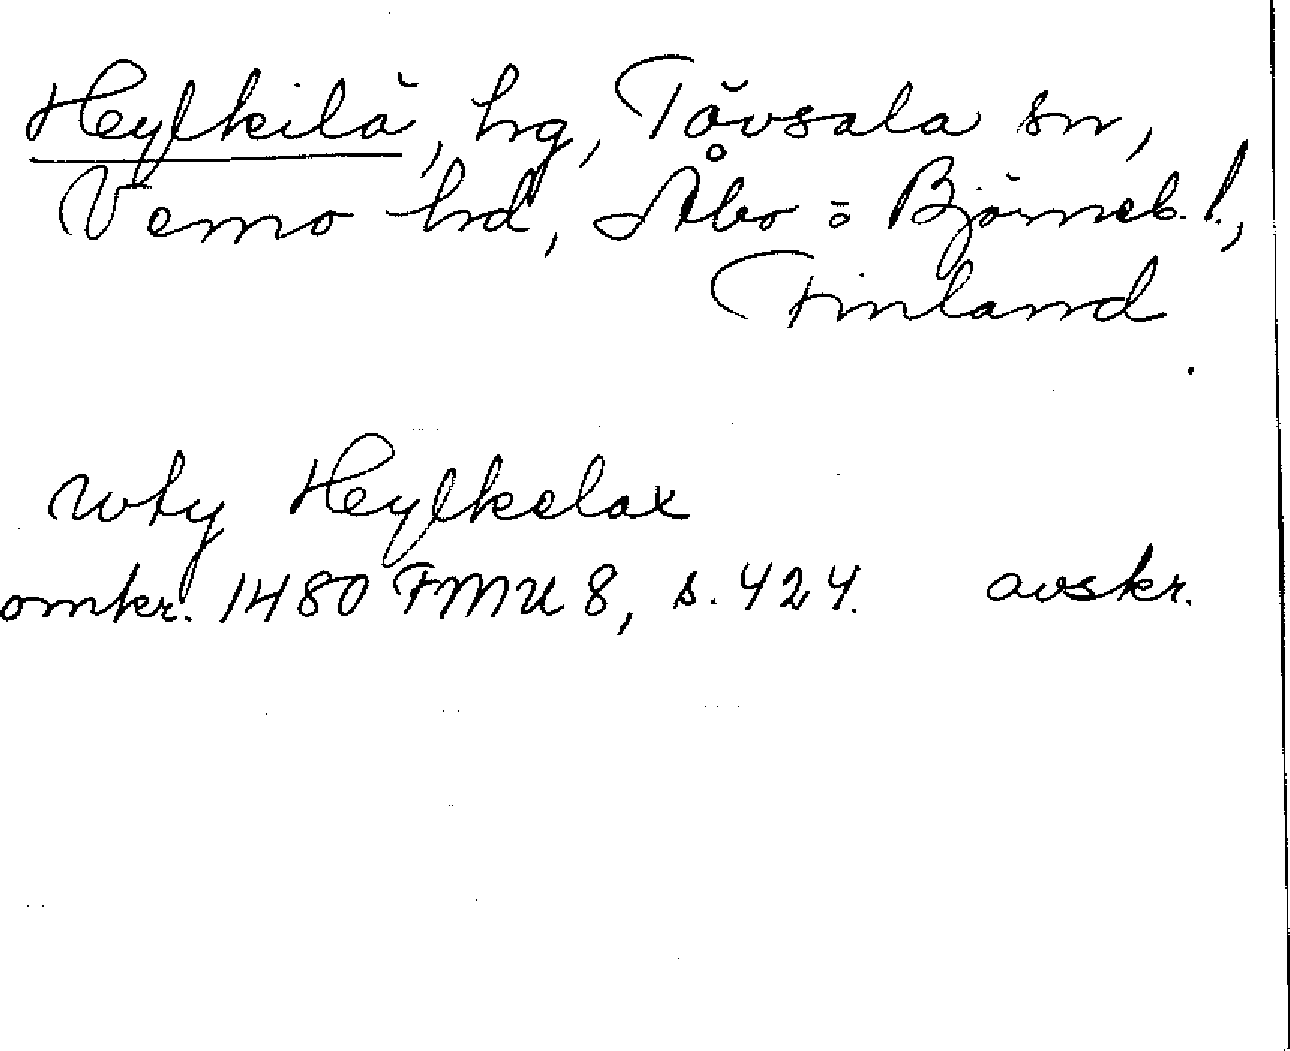 Heylkilä, hg, Tövsala sn,
Vemo hd, Åbo = Björneb. l.,
Finland
Heylkelax
omkr. 1480 FMU 8, s. 424. avskr.